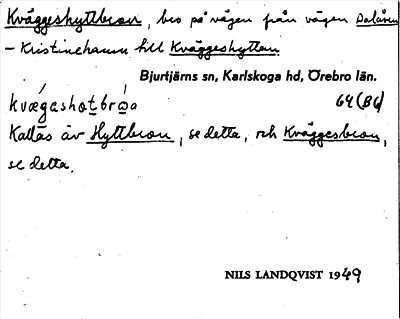 Kväggeshyttbron, bro på vägen från vägen Dalåsen
- Kristinehamn till Kväggeshyttan.
Bjurtjärns sn, Karlskoga hd, Örebro län.
kvægashot̲brώ̲a 64 (B6)
Kallas äv Hyttbron, se detta, och Kväggesbron,
se detta.
NILS LANDQVIST 1949